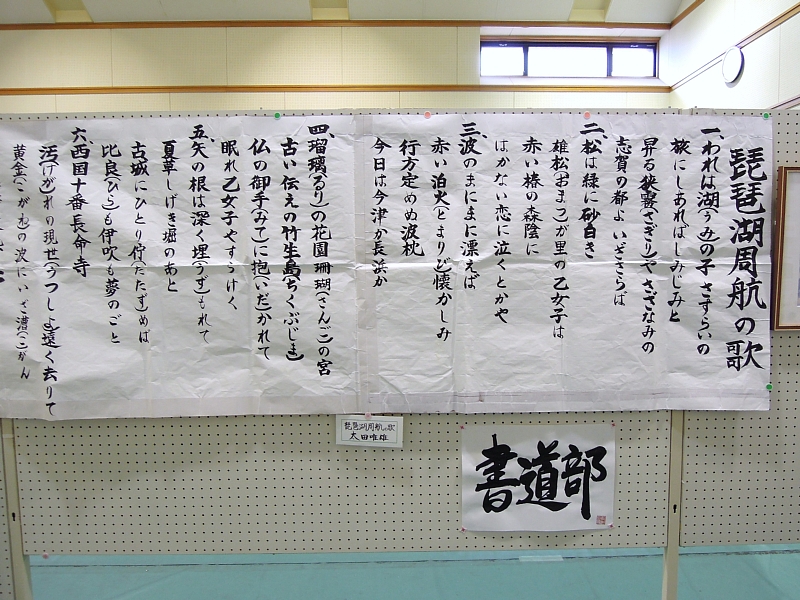 琵琶湖周航の歌
一、われは湖(うみ)の子 さすらいの
旅にしあれば しみじみと
昇る狭霧(さぎり)や さざなみの
志賀の都よ いざさらば
二、松は緑に 砂白き
雄松(おまつ)が里の 乙女子は
赤い椿の 森陰に
はかない恋に 泣くとかや
三、波のまにまに 漂えば
赤い泊火(とまりび) 懐かしみ
行方定めぬ 波枕
今日は今津か 長浜か
四、瑠璃(るり)の花園 珊瑚(さんご)の宮
古い伝えの 竹生島(ちくぶじま)
仏の御手(みて)に 抱(いだ)かれて
眠れ乙女子 やすらけく
五、矢の根は 深く埋(うず)もれて
夏草しげき 堀のあと
古城にひとり 佇(たたず)めば
比良(ひら)も伊吹も 夢のごと
六、西国十番 長命寺
汚(けが)れの現世(うつしよ) 遠く去りて
黄金(こがね)の波に いざ漕(こ)がん
琵琶湖周航の歌
太田唯雄
書道部